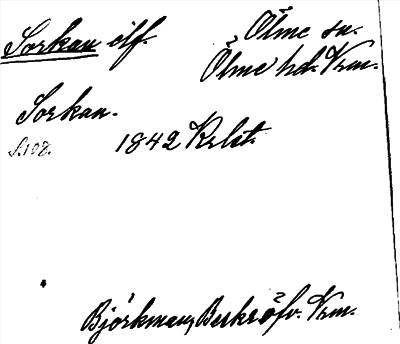 Sorkan älf. Ölme sn.
Ölme hd. Vrm.
Sorkan.
S.108. 1842 Krlst.
Björkman, Beskr. öfv. Vrm.